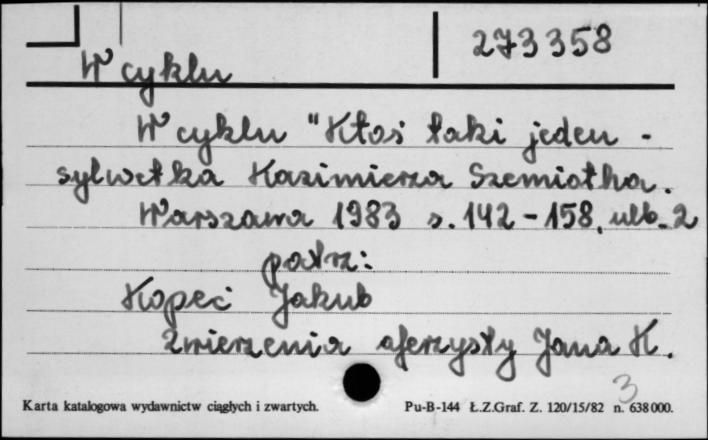 273358
W cyklu
W cyklu "Ktoś taki jeden -
sylwetka Kazimierza Szemiotha.
Warszawa 1983 s. 142-158, ulb. 2
patrz:
Kopeć Jakub
Zwierzenia aferzysty Jana K.
3
Karta katalogowa wydawnictw ciągłych i zwartych. Pu-B-144 Ł.Z.Graf. Z. 120/15/82 n. 638000.